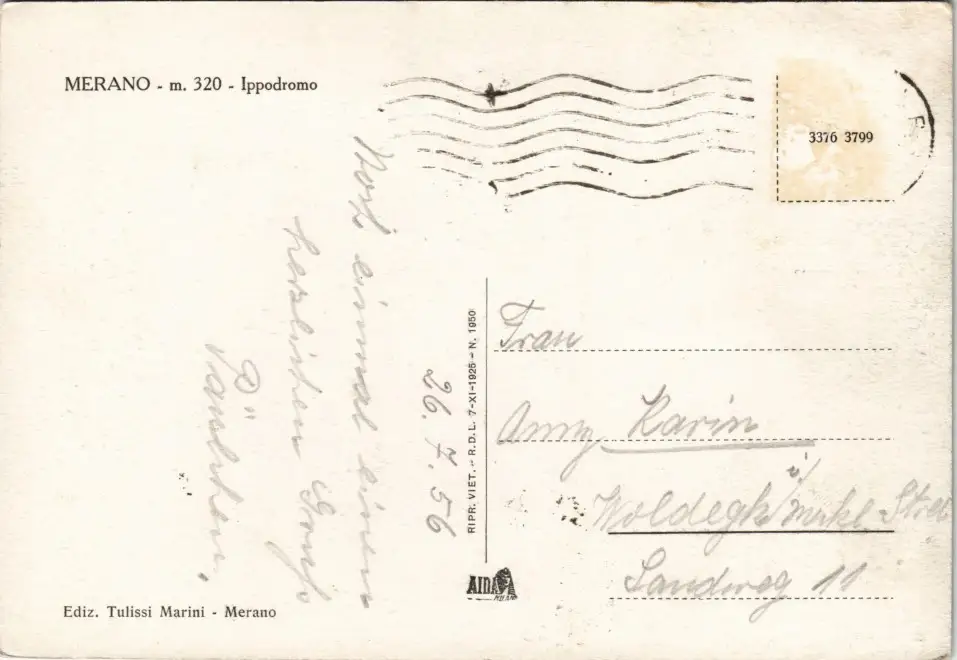 MERANO - m. 320 - Ippodromo
3376 3799
Noch einmal einen
herzlichen Gruß
26. 7. 56
RIPR. VIET. - R.D.L. 7-XI-1925 - N. 1950
Frau
Anny Karin
Woldegk i/ Meckl-
Sandweg 11
AIDA
MILANO
Ediz. Tulissi Marini - Merano